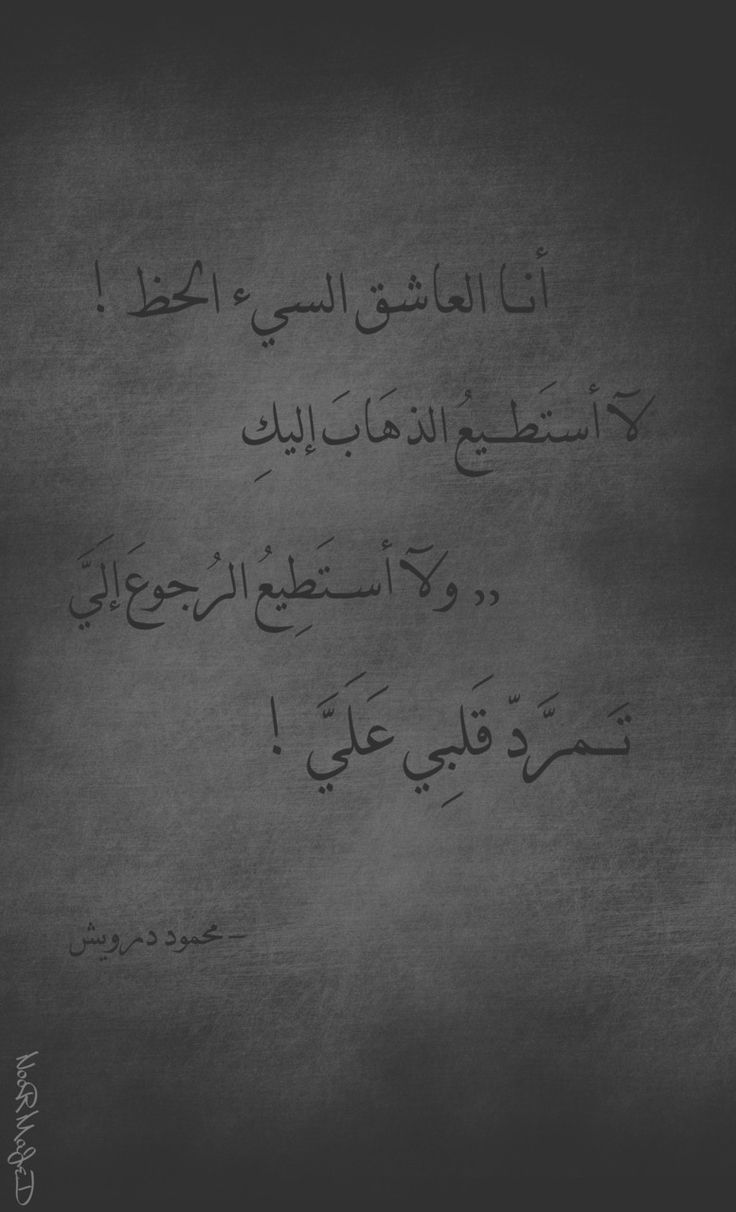 أنـا العاشـق السيء الحظ !
لآ أستَطـيعُ الذهَابَ إليكِ
,, ولآ أستَطِيعُ الرُجوعَ إلَيَّ
تَـمرَّدّ قَلبِي عَلَيَّ !
– محمود درويش
NooR MajeD